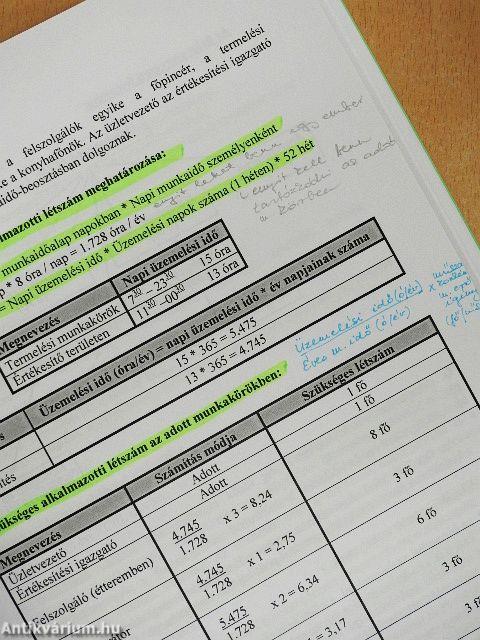 a felszolgálók egyike a főpincér, a termelési
e a konyhafőnök. Az üzletvezető az értékesítési igazgató
idő-beosztásban dolgoznak.
almazotti létszám meghatározása:
munkaidőalap napokban * Napi munkaidő személyenként
p * 8 óra / nap = 1.728 óra / év
= Napi üzemelési idő * Üzemelési napok száma (1 héten) * 52 hét
Megnevezés Napi üzemelési idő
Termelési munkakörök 7³⁰ – 23³⁰ 15 óra
Értékesítő területen 11³⁰ –00³⁰ 13 óra
Üzemelési idő (óra/év) = napi üzemelési idő * év napjainak száma
15 * 365 = 5.475
13 * 365 = 4.745
Üzemelési idő (ó/év)
Éves m. idő (ó/év)
ükséges alkalmazotti létszám az adott munkakörökben:
Megnevezés Számítás módja Szükséges létszám
Üzletvezető Adott 1 fő
Értékesítő igazgató Adott 1 fő
Felszolgáló (étteremben) 4.745 / 1.728 x 3 = 8,24 8 fő
4.745 / 1.728 x 1 = 2,75 3 fő
5.475 / 1.728 x 2 = 6,34 6 fő
= 3,17 3 fő
3 fő
Antikvárium.hu